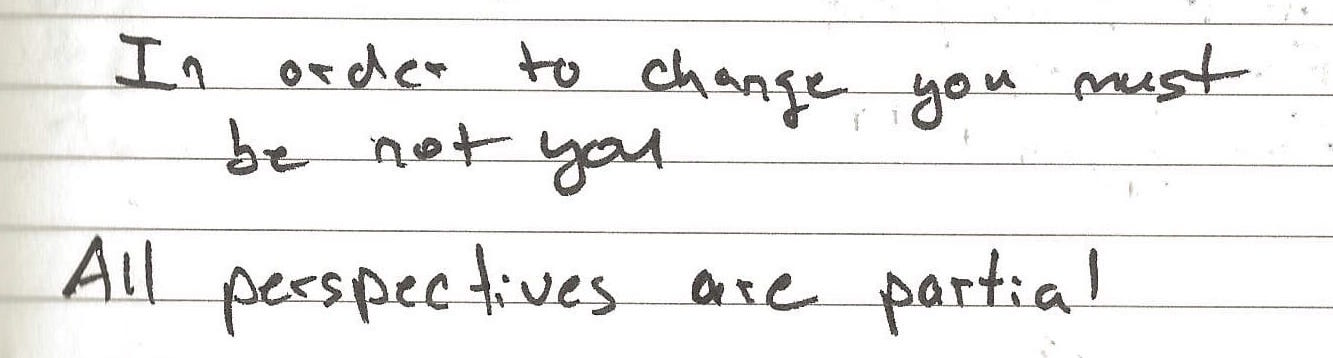 In order to change you must
be not you
All perspectives are partial